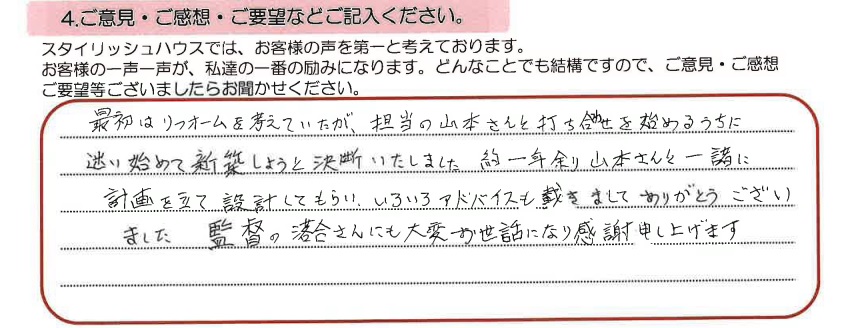 4.ご意見・ご感想・ご要望などご記入ください。
スタイリッシュハウスでは、お客様の声を第一と考えております。
お客様の一声一声が、私達の一番の励みになります。どんなことでも結構ですので、ご意見・ご感想
ご要望等ございましたらお聞かせください。
最初はリフォームを考えていたが、担当の山本さんと打ち合せを始めるうちに
迷い始めて新築しようと決断いたしました 約一年余り山本さんと一諸に
計画を立て設計してもらい、いろいろアドバイスも戴きましてありがとうござい
ました 監督の落合さんにも大変お世話になり感謝申し上げます